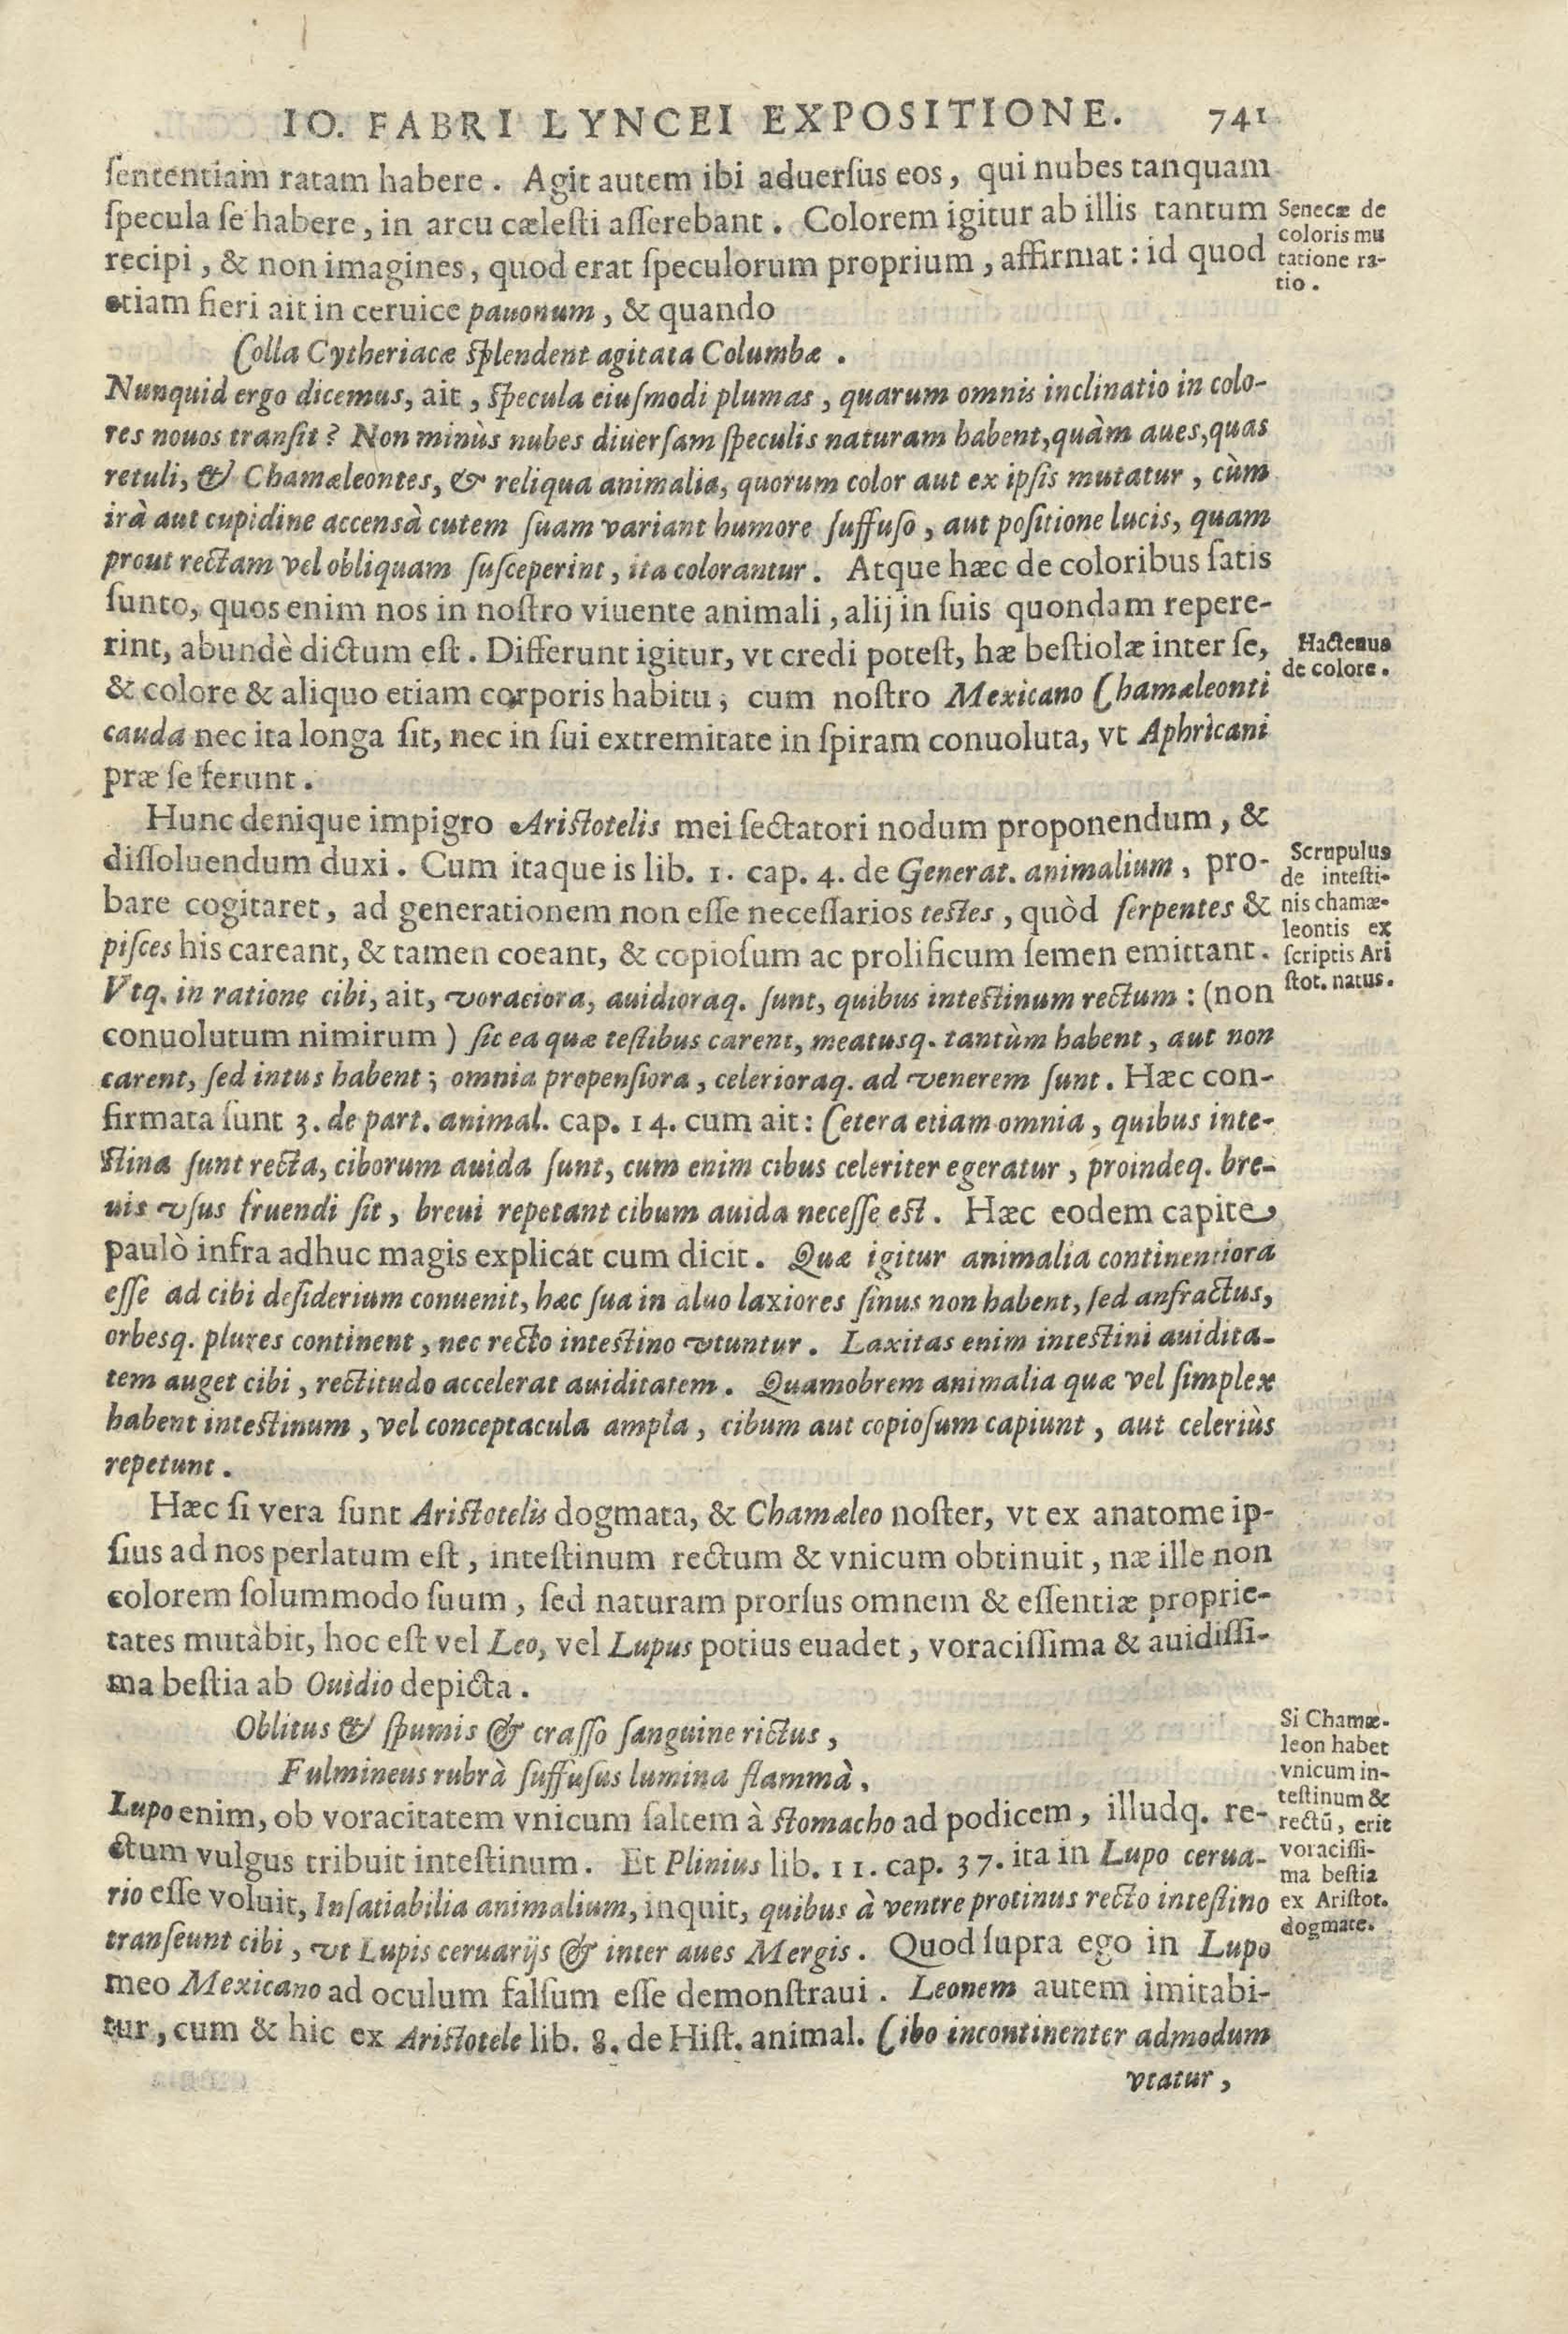 IO. FABRI LYNCEI EXPOSITIONE. 741
ſententiam ratam habere. Agit autem ibi aduerſus eos, qui nubes tanquam
ſpecula ſe habere, in arcu cæleſti aſſerebant. Colorem igitur ab illis tantum
recipi, & non imagines, quod erat ſpeculorum proprium, affirmat: id quod
etiam fieri ait in ceruice pauonum, & quando
Senecæ de
coloris mu
tatione ra-
tio.
Colla Cytheriacæ ſplendent agitata Columbæ.
Nunquid ergo dicemus, ait, ſpecula eiuſmodi plumas, quarum omnis inclinatio in colo-
res nouos tranſit? Non minùs nubes diuerſam ſpeculis naturam habent, quàm aues, quas
retuli, & Chamæleontes, & reliqua animalia, quorum color aut ex ipſis mutatur, cùm
irà aut cupidine accensà cutem ſuam variant humore ſuffuſo, aut poſitione lucis, quam
prout rectam vel obliquam ſuſceperint, ita colorantur. Atque hæc de coloribus ſatis
ſunto, quos enim nos in noſtro viuente animali, alij in ſuis quondam repere-
rint, abundè dictum eſt. Differunt igitur, vt credi poteſt, hæ beſtiolæ inter ſe,
& colore & aliquo etiam corporis habitu, cum noſtro Mexicano Chamæleonti
cauda nec ita longa ſit, nec in ſui extremitate in ſpiram conuoluta, vt Aphricani
præ ſe ferunt.
Hactenus
de colore.
Hunc denique impigro Ariſtotelis mei ſectatori nodum proponendum, &
diſſoluendum duxi. Cum itaque is lib. 1. cap. 4. de Generat. animalium, pro-
bare cogitaret, ad generationem non eſſe neceſſarios teſtes, quòd ſerpentes &
piſces his careant, & tamen coeant, & copioſum ac prolificum ſemen emittant.
Vtq. in ratione cibi, ait, voraciora, auidioraq. ſunt, quibus inteſtinum rectum: (non
conuolutum nimirum) ſic ea quæ teſtibus carent, meatusq. tantùm habent, aut non
carent, ſed intus habent; omnia propenſiora, celerioraq. ad venerem ſunt. Hæc con-
firmata ſunt 3. de part. animal. cap. 14. cum ait: Cetera etiam omnia, quibus inte-
ſtina ſunt recta, ciborum auida ſunt, cum enim cibus celeriter egeratur, proindeq. bre-
uis vſus fruendi ſit, breui repetant cibum auida neceſſe eſt. Hæc eodem capite
paulò infra adhuc magis explicat cum dicit. Quæ igitur animalia continentiora
eſſe ad cibi deſiderium conuenit, hæc ſua in aluo laxiores ſinus non habent, ſed anfractus,
orbesq. plures continent, nec recto inteſtino vtuntur. Laxitas enim inteſtini auidita-
tem auget cibi, rectitudo accelerat auiditatem. Quamobrem animalia quæ vel ſimplex
habent inteſtinum, vel conceptacula ampla, cibum aut copioſum capiunt, aut celeriùs
repetunt.
Scrupulus
de inteſti-
nis chamæ-
leontis ex
ſcriptis Ari
ſtot. natus.
Hæc ſi vera ſunt Ariſtotelis dogmata, & Chamæleo noſter, vt ex anatome ip-
ſius ad nos perlatum eſt, inteſtinum rectum & vnicum obtinuit, næ ille non
colorem ſolummodo ſuum, ſed naturam prorſus omnem & eſſentiæ proprie-
tates mutàbit, hoc eſt vel Leo, vel Lupus potius euadet, voraciſſima & auidiſſi-
ma beſtia ab Ouidio depicta.
Oblitus & ſpumis & craſſo ſanguine rictus,
Fulmineus rubrà ſuffuſus lumina flammà,
Lupo enim, ob voracitatem vnicum ſaltem à ſtomacho ad podicem, illudq. re-
ctum vulgus tribuit inteſtinum. Et Plinius lib. 11. cap. 37. ita in Lupo cerua-
rio eſſe voluit, Inſatiabilia animalium, inquit, quibus à ventre protinus recto inteſtino
tranſeunt cibi, vt Lupis ceruarijs & inter aues Mergis. Quod ſupra ego in Lupo
meo Mexicano ad oculum falſum eſſe demonſtraui. Leonem autem imitabi-
tur, cum & hic ex Ariſtotele lib. 8. de Hiſt. animal. Cibo incontinenter admodum
vtatur,
Si Chamæ-
leon habet
vnicum in-
teſtinum &
rectū, erit
voraciſſi-
ma beſtia
ex Ariſtot.
dogmate.